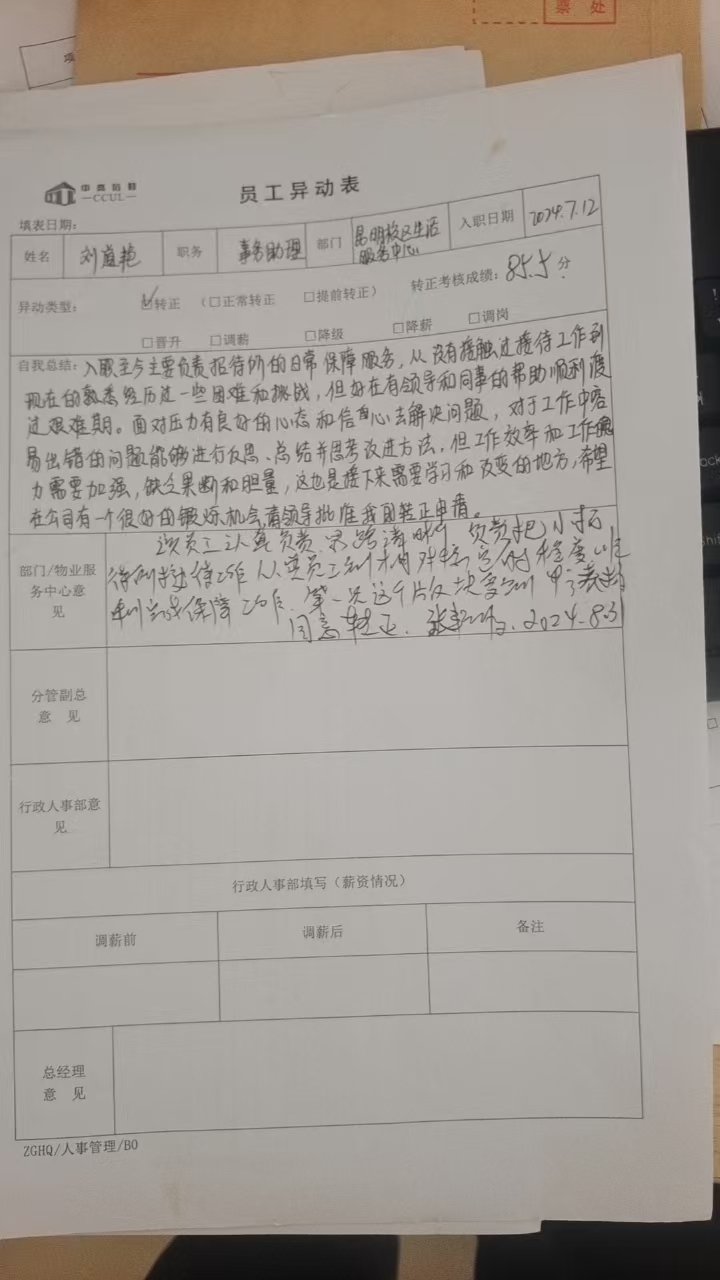 票 处
项
中高后勤
CCUL
员工异动表
填表日期：
姓名 刘道艳 职务 事务助理 部门 昆明校区生活服务中心 入职日期 2024.7.12
异动类型： ☑转正 （□正常转正 □提前转正） 转正考核成绩：85.5 分
□晋升 □调薪 □降级 □降薪 □调岗
自我总结：入职至今主要负责招待所的日常保障服务，从没有接触过接待工作到
现在的熟悉经历过一些困难和挑战，但好在有领导和同事的帮助顺利渡
过艰难期。面对压力有良好的心态和信心去解决问题，对于工作中容
易出错的问题能够进行反思、总结并思考改进方法，但工作效率和工作
力需要加强，缺乏果断和胆量，这也是接下来需要学习和改变的地方，希望
在公司有一个很好的锻炼机会，请领导批准我的转正申请。
部门/物业服务中心意见
该员工认真负责，思路清晰，负责把
待所接待工作从
保障工作，第一次
同意转正. 2024.8.31
分管副总
意 见
行政人事部意见
行政人事部填写（薪资情况）
调薪前 调薪后 备注
总经理
意 见
ZGHQ/人事管理/B0